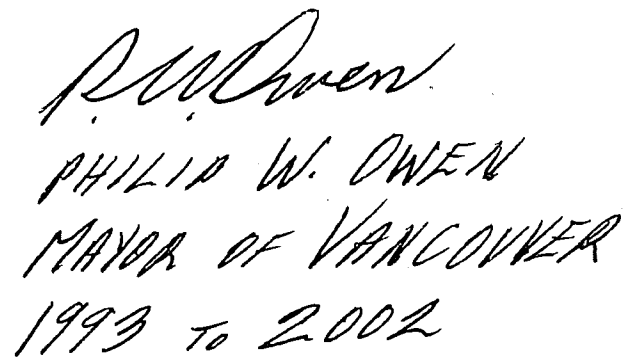 P. W. Owen
PHILIP W. OWEN
MAYOR OF VANCOUVER
1993 TO 2002